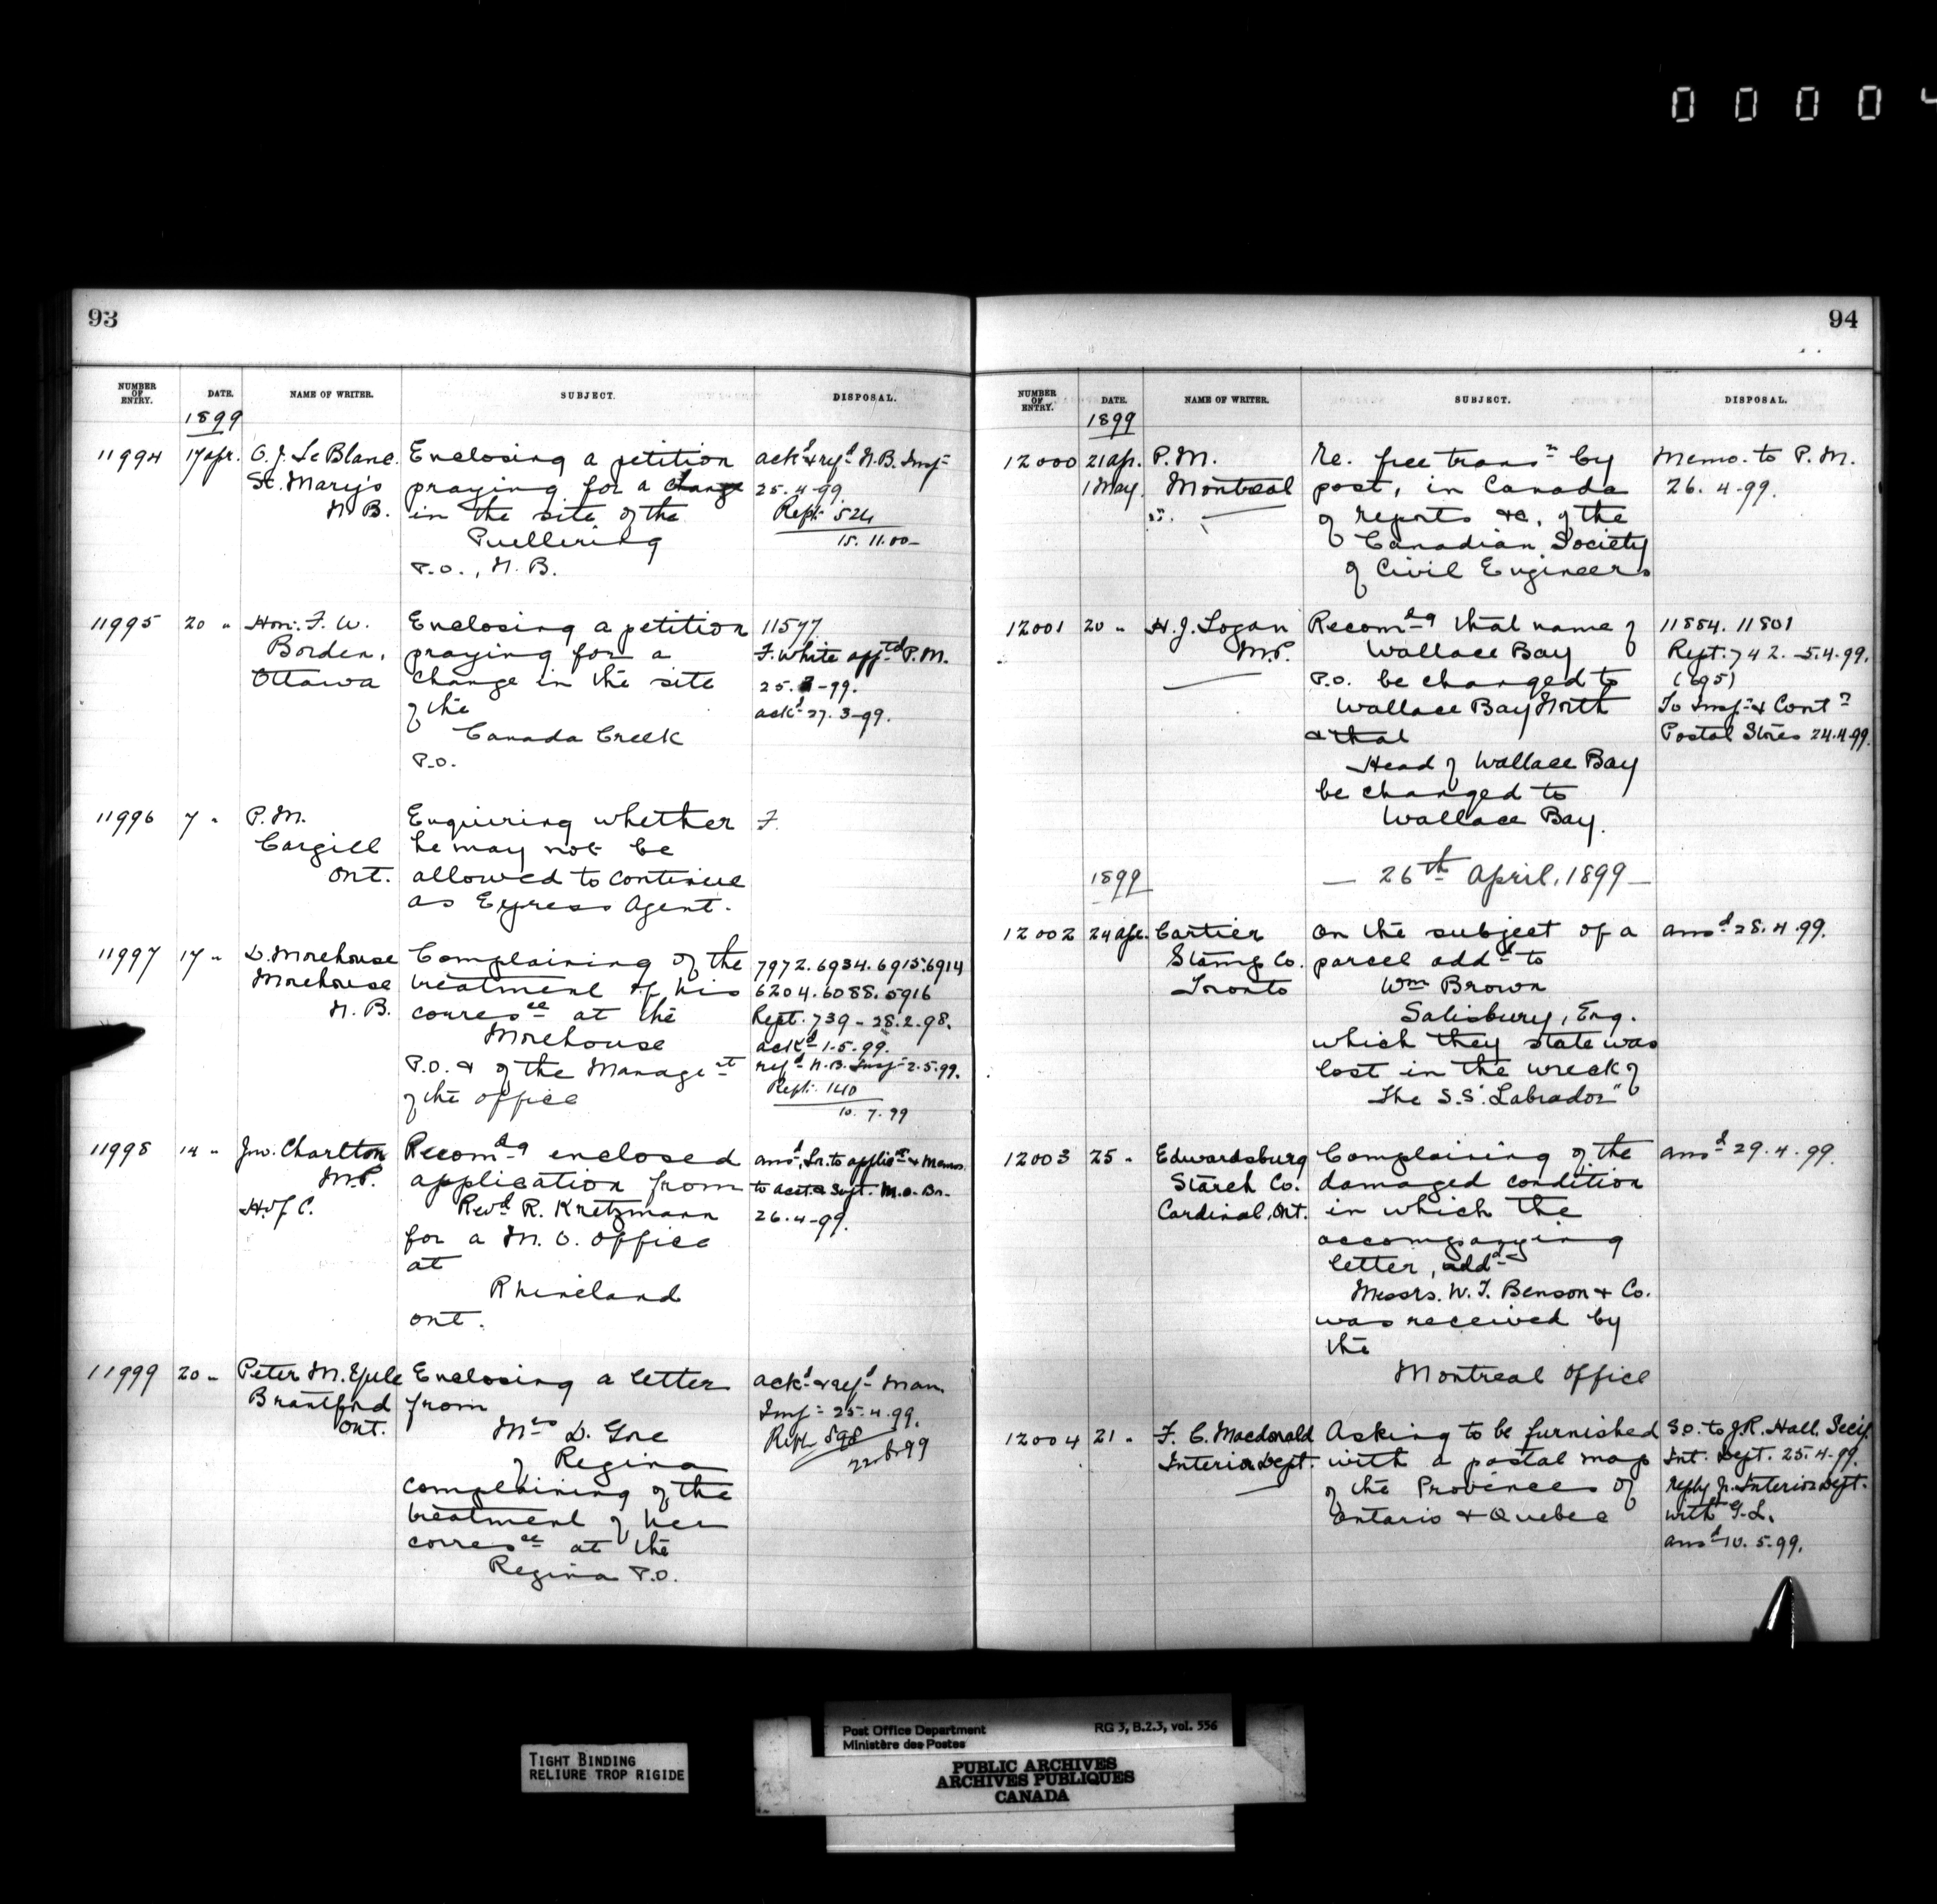 0 0 0 0 4
93
NUMBER OF ENTRY. DATE. NAME OF WRITER. SUBJECT. DISPOSAL.
1899
11994 17 Apr. O. J. Le Blanc. St. Mary's N. B.
Enclosing a petition
praying for a change
in the site of the
P.O., N. B.
ackd & refd N.B. Inspr
25.4.99.
Rept. 524
15.11.00
11995 20 " Hon. F. W. Borden, Ottawa
Enclosing a petition
praying for a
change in the site
of the
Canada Creek
P.O.
11577
F. White apptd P.M.
25. -99.
ackd 27.3-99.
11996 7 " P.M. Cargill Ont.
Enquiring whether
he may not be
allowed to continue
as Express Agent.
F.
11997 17 " D. Morehouse Morehouse N. B.
Complaining of the
treatment of his
corresce at the
Morehouse
P.O. & of the Managet
of the office
7972. 6934. 6915. 6914
6204. 6088. 5916
Rept. 739 - 28.2.98.
ackd 1.5.99.
refd N.B. Inspr 2.5.99.
Rept. 140
10.7.99
11998 14 " Jno. Charlton M.P. H. of C.
Recomdg enclosed
application from
Revd R. Kretzmann
for a M. O. office
at
Rhineland
Ont.
ansd, Lr. to applict & Memos.
to acct. & Supt. M.O. Br.
26.4-99.
11999 20 " Peter M. Brantford Ont.
Enclosing a letter
from
Mrs D. Gore
of Regina
complaining of the
treatment of her
corresce at the
Regina P.O.
ackd & refd Man.
Inspr 25.4.99.
Rept. 598
94
NUMBER OF ENTRY. DATE. NAME OF WRITER. SUBJECT. DISPOSAL.
1899
12000 21 Ap. 1 May. P.M. Montreal
Re. free transn by
post, in Canada
of reports &c. of the
Canadian Society
of Civil Engineers
Memo. to P. M.
26.4-99.
12001 20 " H. J. Logan M.P.
Recomdg that name of
Wallace Bay
P.O. be changed to
Wallace Bay North
& that
Head of Wallace Bay
be changed to
Wallace Bay.
11884. 11801
Rept. 742. 5.4.99.
(695)
To Inspr & Contr
Postal Stores 24.4.99.
1899
— 26th April, 1899 —
12002 24 Apr. Cartier Stamp Co. Toronto
On the subject of a
parcel addd to
Wm Brown
Salisbury, Eng.
which they state was
lost in the wreck of
the S.S. "Labrador"
ansd 28.4.99.
12003 25 " Edwardsburg Starch Co. Cardinal, Ont.
Complaining of the
damaged condition
in which the
accompanying
letter, addd
Messrs. W. T. Benson & Co.
was received by
the
Montreal Office
ansd 29.4.99.
12004 21 " F. C. Macdonald Interior Dept.
Asking to be furnished
with a postal map
of the Provinces of
Ontario & Quebec
S.O. to J.R. Hall, Secy.
Int. Dept. 25.4.99.
reply fr. Interior Dept.
with G.L.
ansd 10.5.99.
TIGHT BINDING
RELIURE TROP RIGIDE
Post Office Department RG 3, B.2.3, vol. 556
Ministère des Postes
PUBLIC ARCHIVES
ARCHIVES PUBLIQUES
CANADA